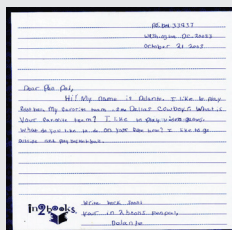 PO Box 33957
Washington DC, 20033
October 21 2003
Dear Pen Pal,
Hi! My name is Delante. I like to play
football. My favorite team is the Dallas Cowboys. What is
your favorite team? I like to play video games.
What do you like to do on your free time? I like to go
outside and play basketball.
in2books
Write back soon
Your in2books penpal,
Delante